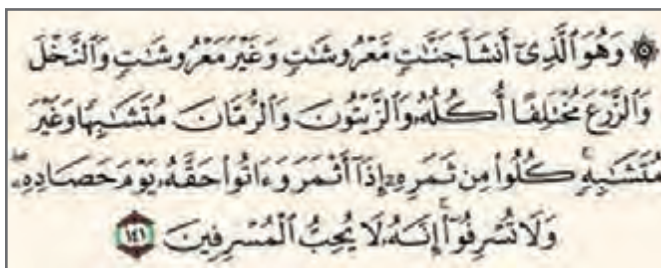 ۞ وَهُوَ ٱلَّذِىٓ أَنشَأَ جَنَّٰتٍ مَّعْرُوشَٰتٍ وَغَيْرَ مَعْرُوشَٰتٍ وَٱلنَّخْلَ
وَٱلزَّرْعَ مُخْتَلِفًا أُكُلُهُۥ وَٱلزَّيْتُونَ وَٱلرُّمَّانَ مُتَشَٰبِهًا وَغَيْرَ
مُتَشَٰبِهٍۚ كُلُوا۟ مِن ثَمَرِهِۦٓ إِذَآ أَثْمَرَ وَءَاتُوا۟ حَقَّهُۥ يَوْمَ حَصَادِهِۦۖ
وَلَا تُسْرِفُوٓا۟ۚ إِنَّهُۥ لَا يُحِبُّ ٱلْمُسْرِفِينَ ١٤١